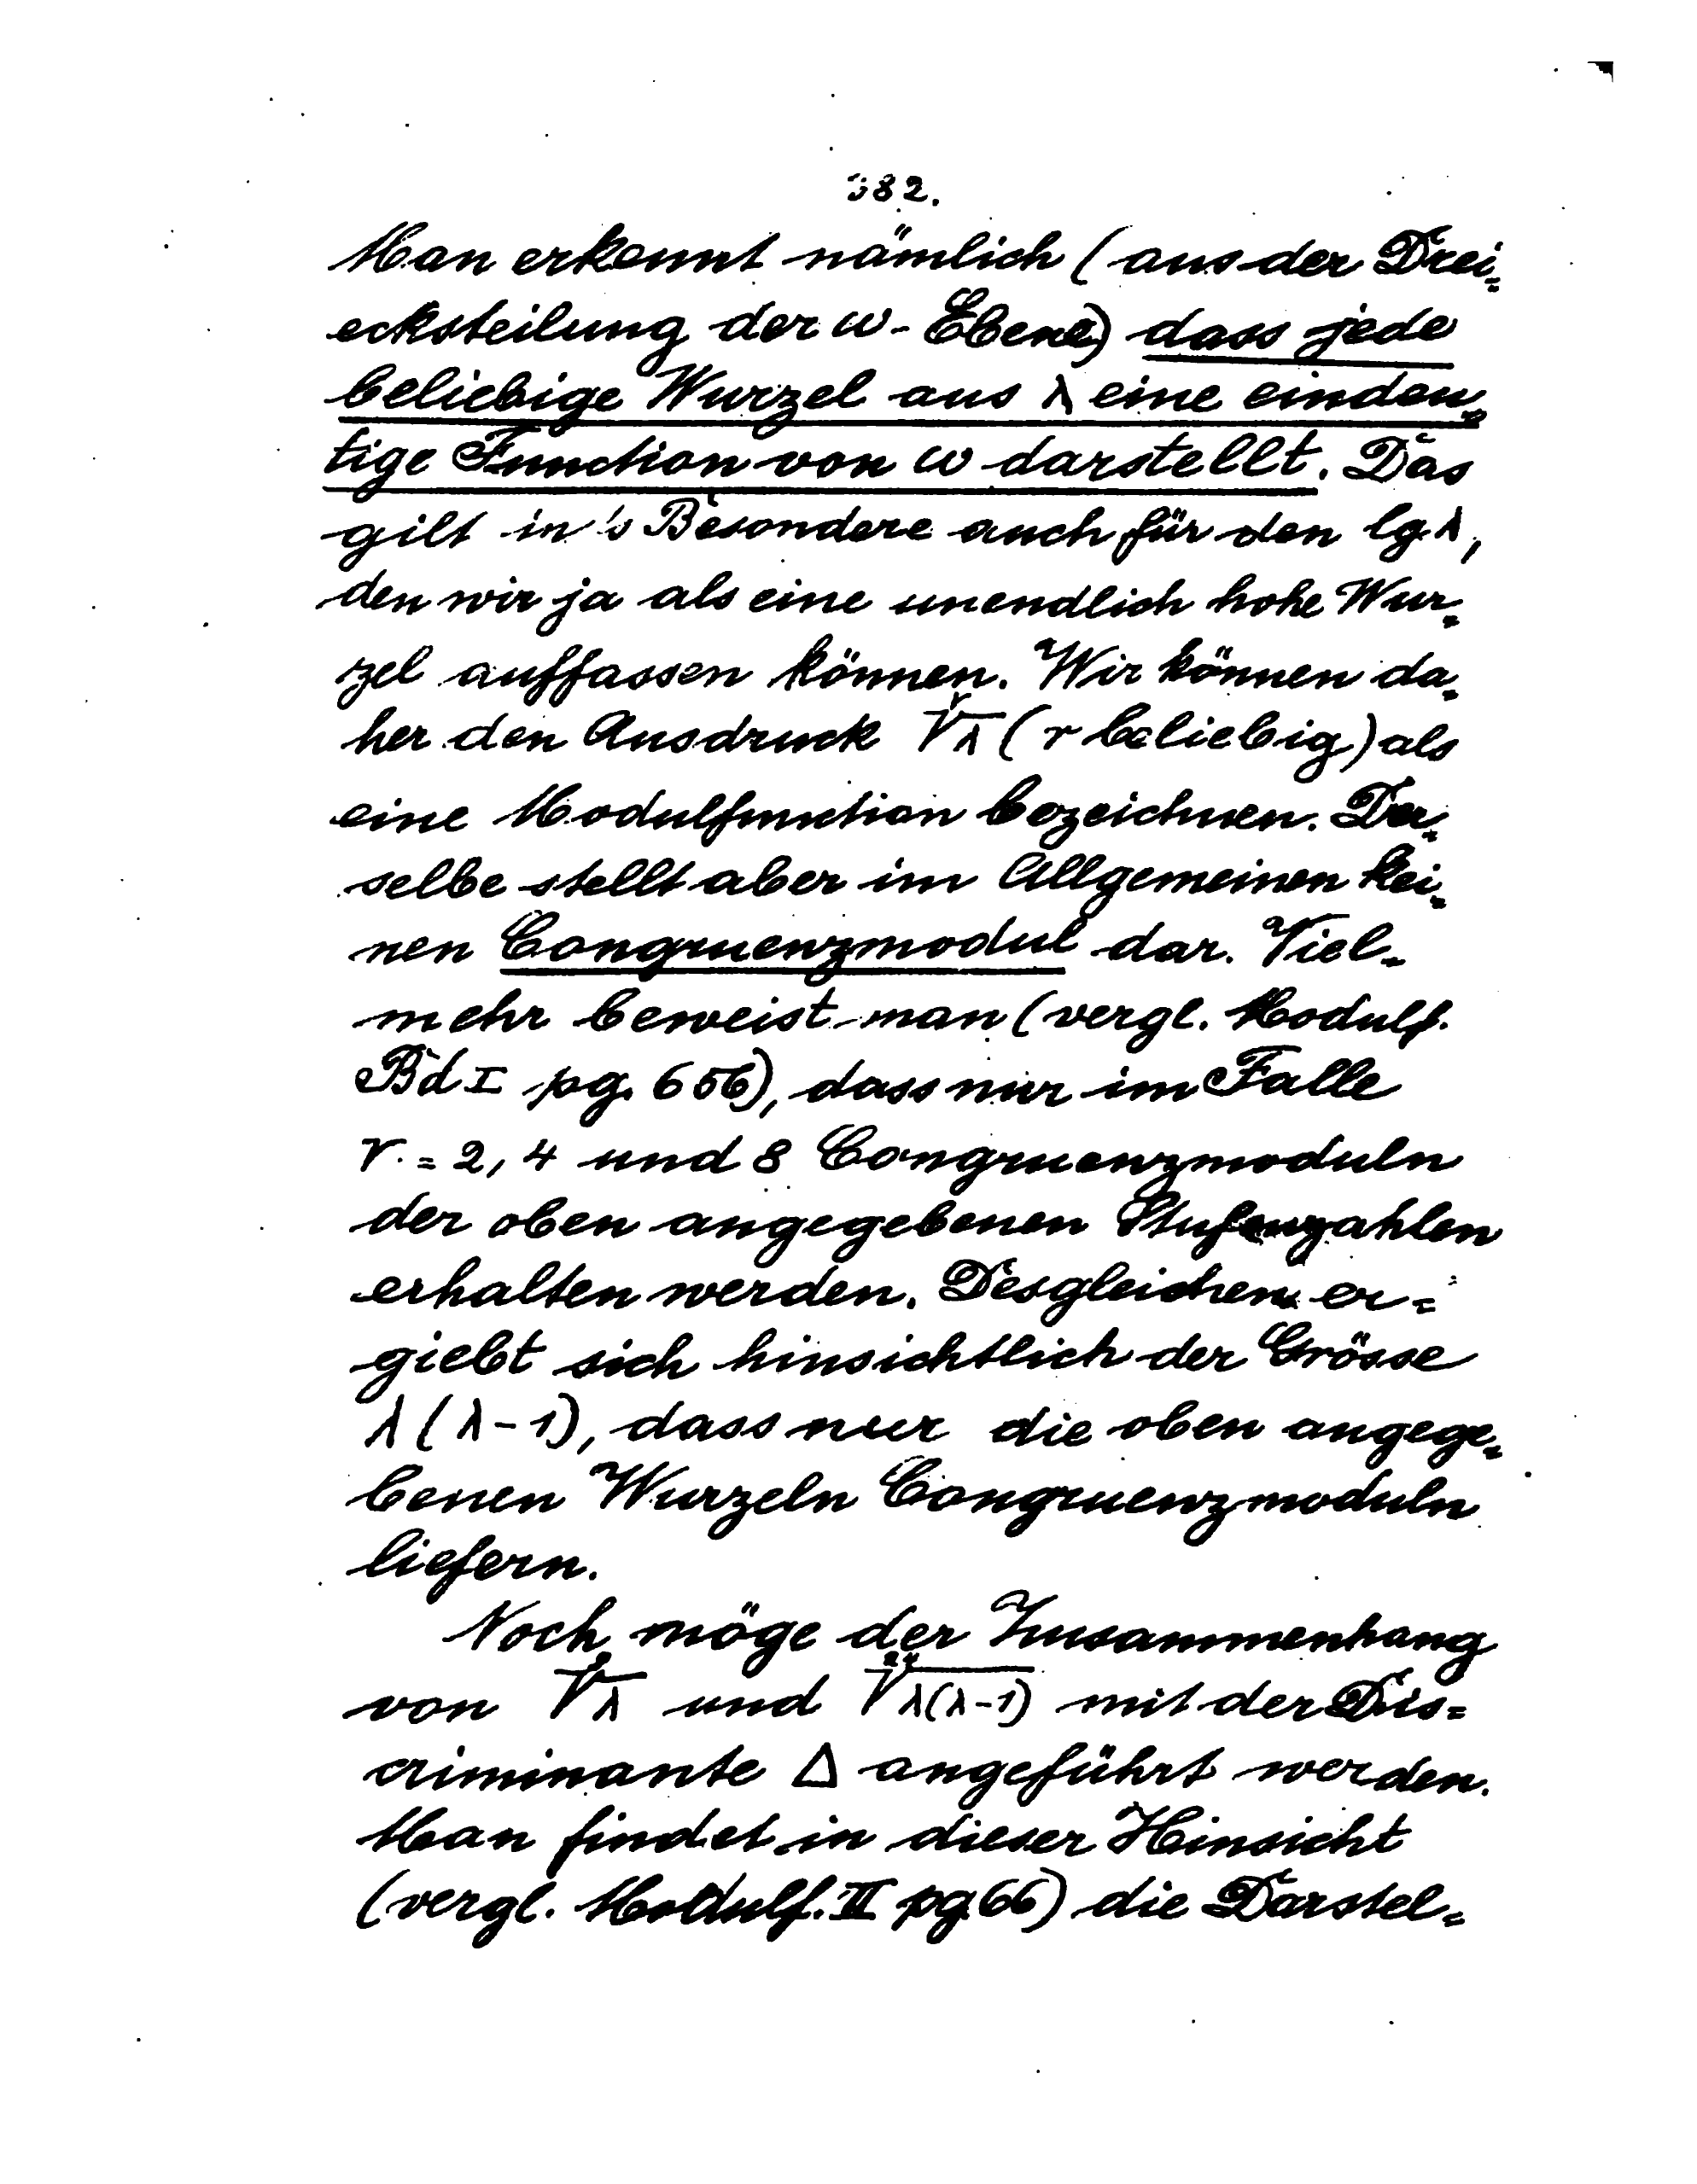 382.
Man erkennt nämlich (aus der Drei=
ecksteilung der ω-Ebene) dass jede
beliebige Wurzel aus λ eine eindeu=
tige Function von ω darstellt. Das
gilt in's Besondere auch für den lg λ,
den wir ja als eine unendlich hohe Wur=
zel auffassen können. Wir können da=
her den Ausdruck ʳ√λ (r beliebig) als
eine Modulfunction bezeichnen. Der=
selbe stellt aber im Allgemeinen kei=
nen Congruenzmodul dar. Viel=
mehr beweist man (vergl. Modulf.
Bd I pg. 656), dass nur im Falle
r = 2, 4 und 8 Congruenzmoduln
der oben angegebenen Stufenzahlen
erhalten werden. Desgleichen er=
giebt sich hinsichtlich der Grösse
λ(λ-1), dass nur die oben angege=
benen Wurzeln Congruenzmoduln
liefern.
Noch möge der Zusammenhang
von ⁸√λ und ²⁴√λ(λ-1) mit der Dis=
criminante Δ angeführt werden.
Man findet in dieser Hinsicht
(vergl. Modulf. II pg 66) die Darstel=